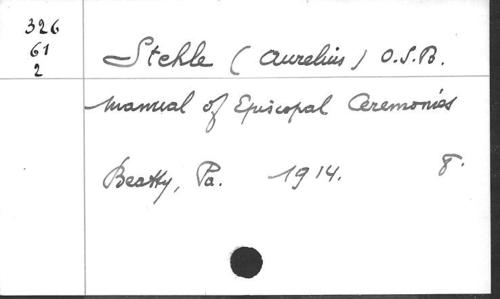 326
61
2
Stehle (Aurelius) O.S.B.
Manual of Episcopal Ceremonies
Beatty, Pa. 1914. 8.